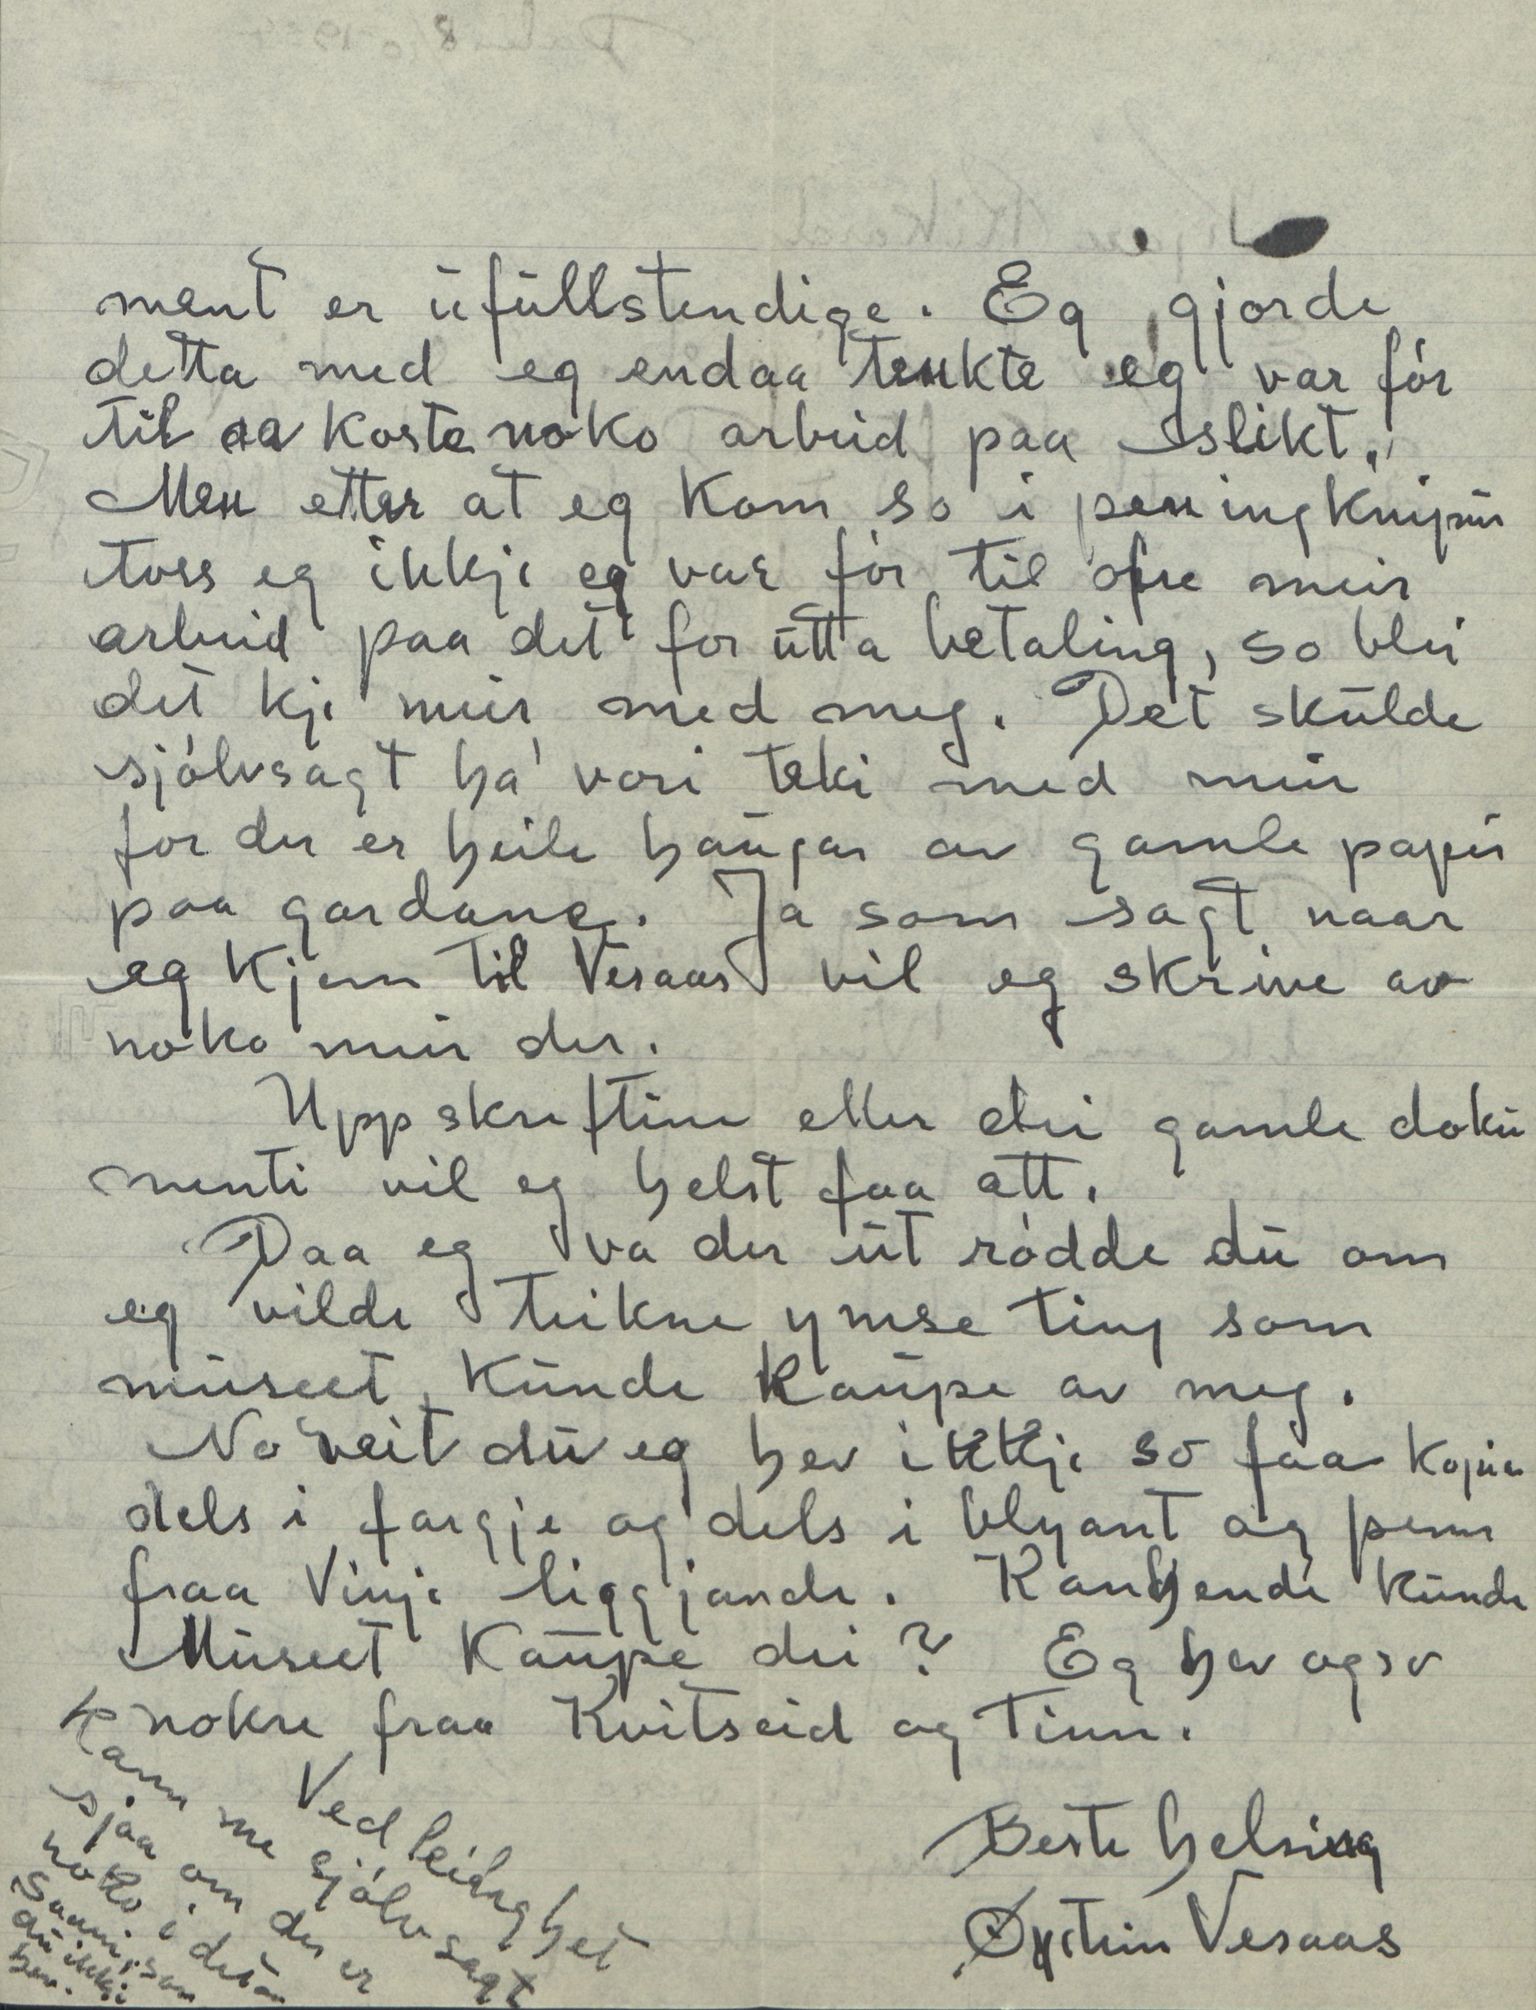 ment er ufullstendige. Eg gjorde
detta med eg endaa tenkte eg var fór
til aa koste noko arbeid paa slikt.
Men etter at eg kom so i peningknipun
toss eg ikkje eg var fór til ofre meir
arbeid paa det for utta betaling, so blei
det kje meir med meg. Det skulde
sjólvsagt ha' vori teki med meir
for der er heile haugar av gamle papir
paa gardane. Ja som sagt naar
eg kjem til Vesaas vil eg skrive av
noko meir der.
Uppskreftine eller dei gamle doku
menti vil eg helst faa att.
Daa eg va der utródde du om
eg vilde teikne ymse ting som
museet kunde kaupe av meg.
No veit du eg hev ikkje so faa kopier
dels i fargje og dels i blyant og penn
fraa Vinje liggjande. Kanhende kunde
Museet kaupe dei? Eg hev ogso
nokre fraa Kvitseid og Tinn.
Beste helsing
Øystein Vesaas
Ved leidighet
kann me sjólvsagt
sjaa om der er
noko i det
som
du ikkje
hev.